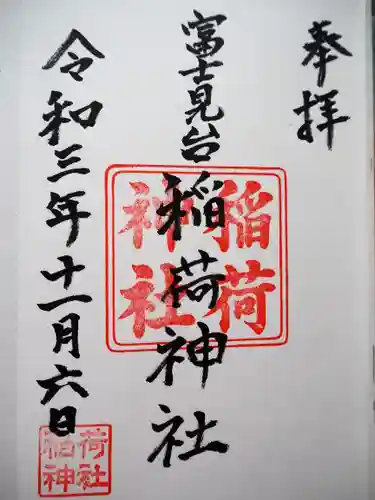 奉拝
富士見台稲荷神社
稲荷神社
令和三年十一月六日
稲荷神社